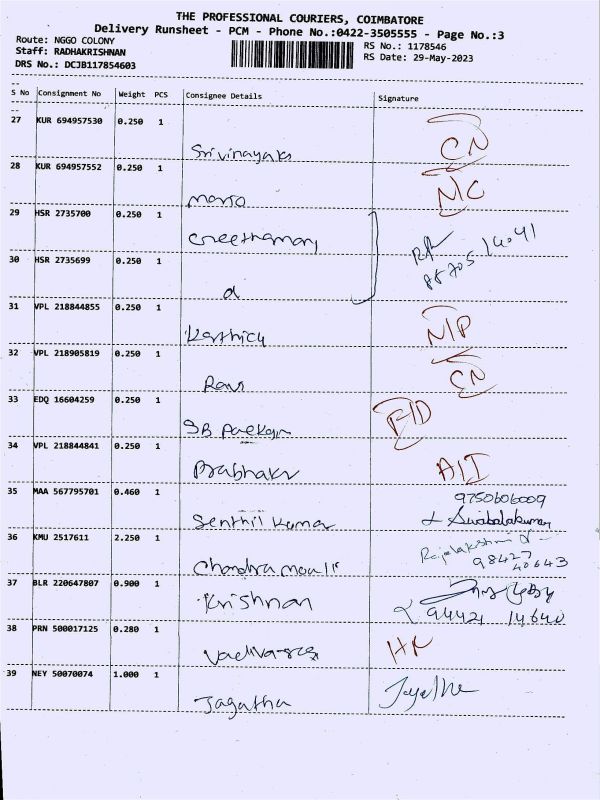 THE PROFESSIONAL COURIERS, COIMBATORE
Delivery Runsheet - PCM - Phone No.:0422-3505555 - Page No.:3
Route: NGGO COLONY
RS No.: 1178546
Staff: RADHAKRISHNAN
RS Date: 29-May-2023
DRS No.: DCJB117854603
S No Consignment No Weight PCS Consignee Details Signature
27 KUR 694957530 0.250 1
Srivinayaks CN
28 KUR 694957552 0.250 1
NC
29 HSR 2735700 0.250 1
30 HSR 2735699 0.250 1
31 VPL 218844855 0.250 1
Karthick N/P
32 VPL 218905819 0.250 1
Ravi CN
33 EDQ 16604259 0.250 1
SB
34 VPL 218844841 0.250 1
Prabhakr
35 MAA 567795701 0.460 1
9750606009
Senthil Kumar
36 KMU 2517611 2.250 1
Rajalakshmi
98427 40643
Chandra mouli
37 BLR 220647807 0.900 1
Krishnan
94421 14640
38 PRN 500017125 0.280 1
39 NEY 50070074 1.000 1
Jagatha